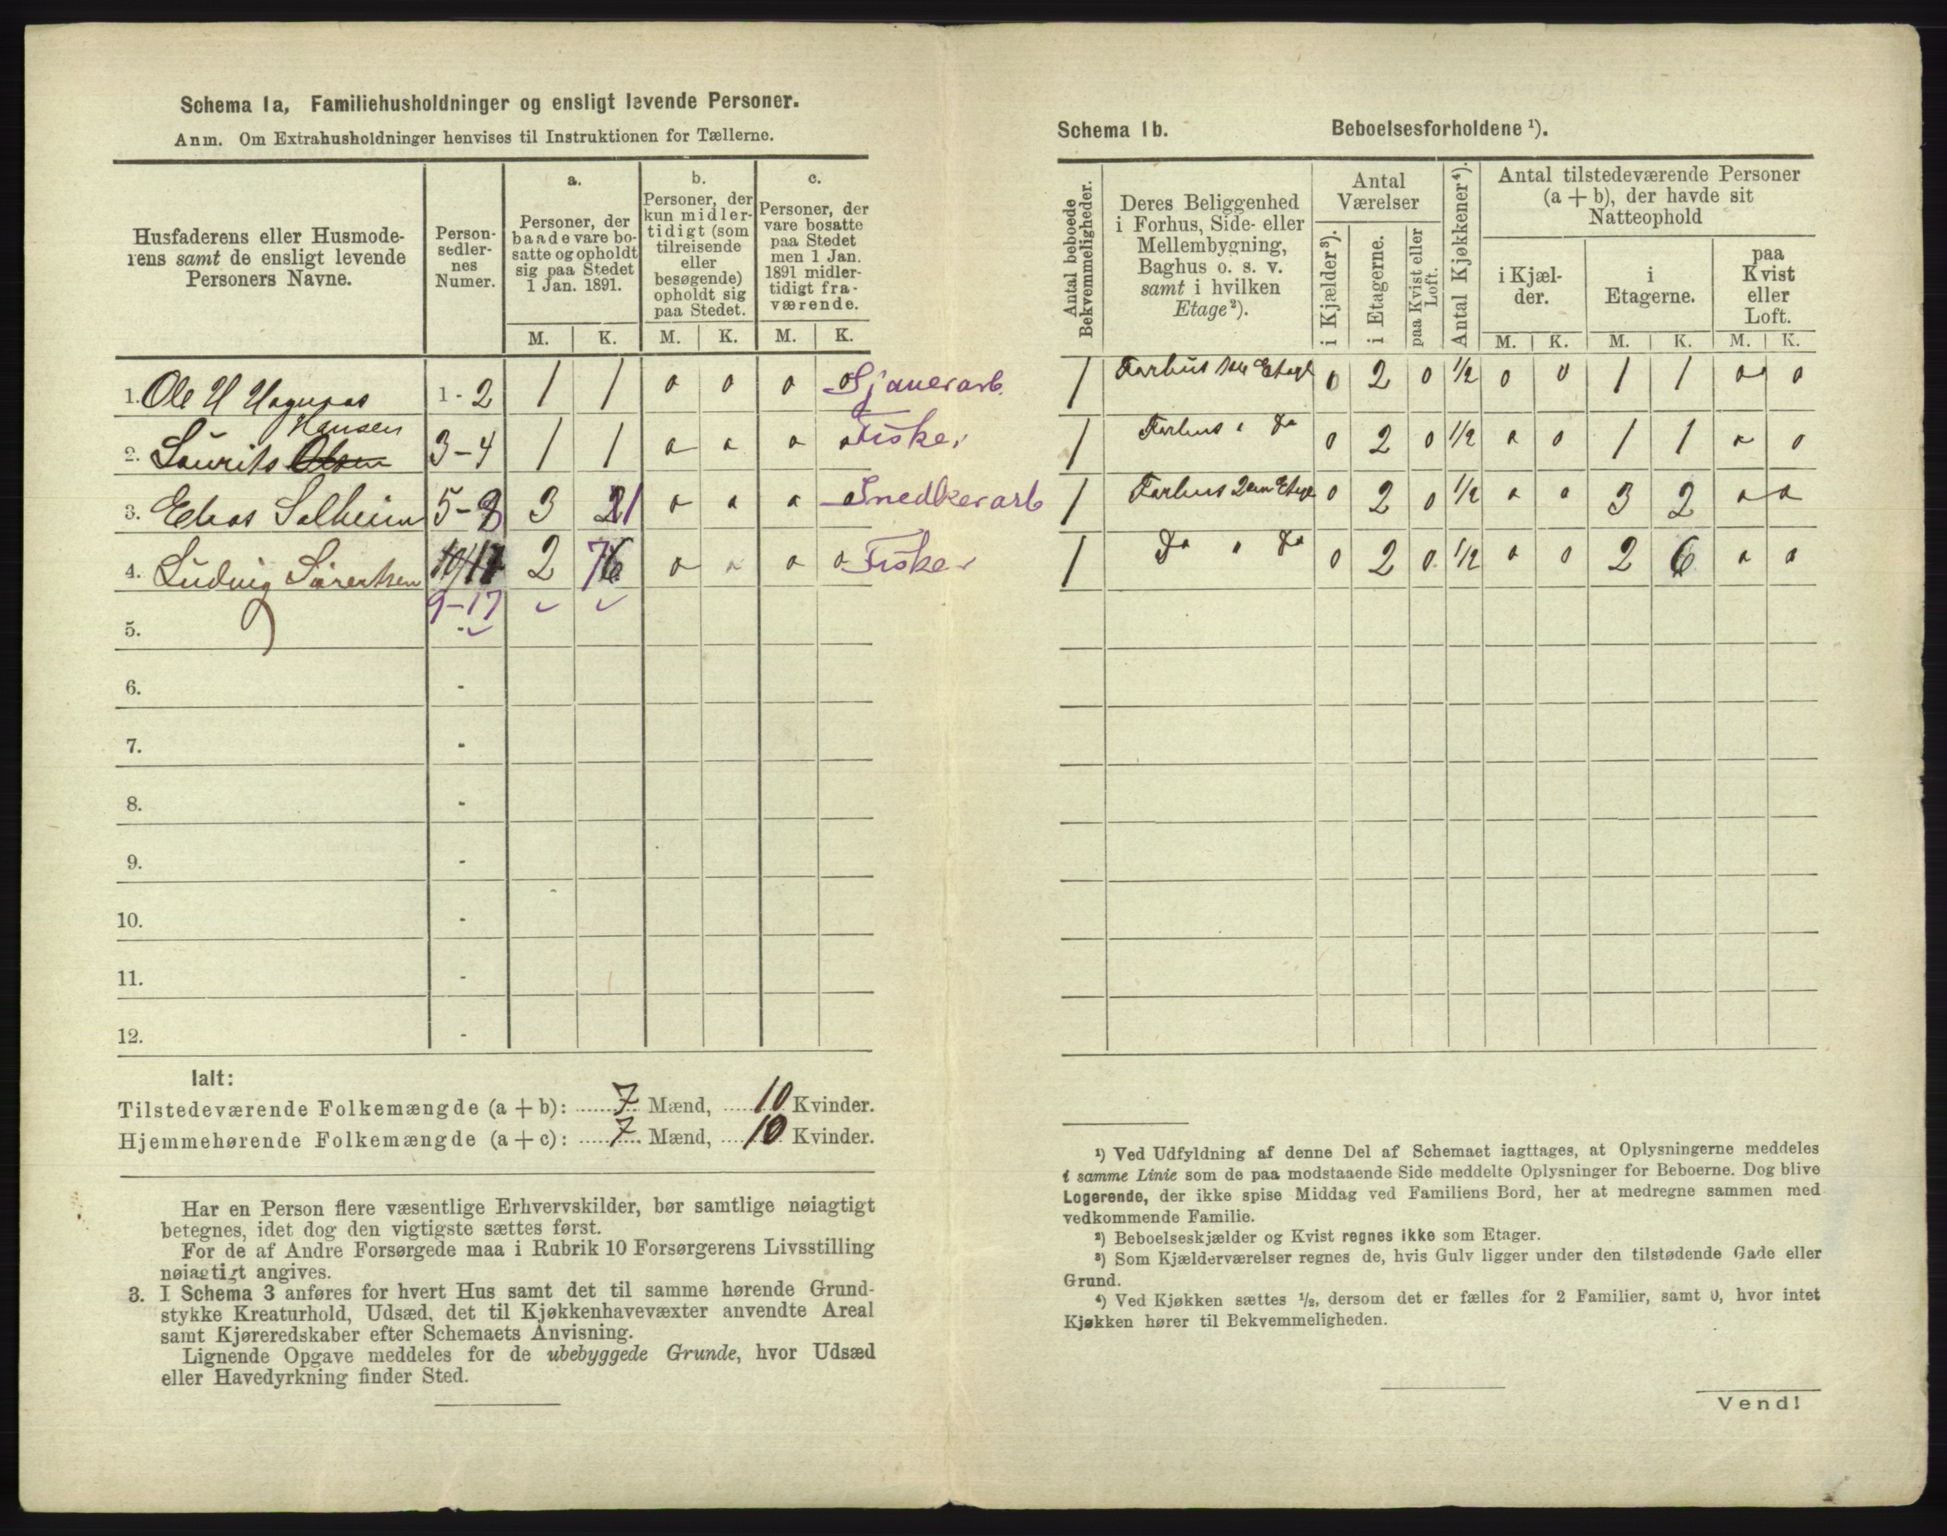 Schema 1a, Familiehusholdninger og ensligt levende Personer.
Anm. Om Extrahusholdninger henvises til Instruktionen for Tællerne.
Husfaderens eller Husmode-
rens samt de ensligt levende
Personers Navne.
Person-
sedler-
nes
Numer.
a.
Personer, der
baade vare bo-
satte og opholdt
sig paa Stedet
1 Jan. 1891.
b.
Personer, der
kun midler-
tidigt (som
tilreisende
eller
besøgende)
opholdt sig
paa Stedet.
c.
Personer, der
vare bosatte
paa Stedet
men 1 Jan.
1891 midler-
tidigt fra-
værende.
M. K. M. K. M. K.
1. Ole H 1 - 2 1 1 0 0 0 0 Sjauerarb.
Hansen
2. Laurits Olsen 3-4 1 1 0 0 0 0 Fisker
3. Elias Solheim 5-8 3 1 0 0 0 0 Snedkerarb
4. Ludvig Sørensen 2 7 0 0 0 0 Fisker
9-17
5.
6. -
7. -
8. -
9. -
10. -
11. -
12. -
Ialt:
Tilstedeværende Folkemængde (a + b): 7 Mænd, 10 Kvinder.
Hjemmehørende Folkemængde (a + c): 7 Mænd, 10 Kvinder.
Har en Person flere væsentlige Erhvervskilder, bør samtlige nøiagtigt
betegnes, idet dog den vigtigste sættes først.
For de af Andre Forsørgede maa i Rubrik 10 Forsørgerens Livsstilling
nøiagtigt angives.
3. I Schema 3 anføres for hvert Hus samt det til samme hørende Grund-
stykke Kreaturhold, Udsæd, det til Kjøkkenhavevæxter anvendte Areal
samt Kjøreredskaber efter Schemaets Anvisning.
Lignende Opgave meddeles for de ubebyggede Grunde, hvor Udsæd
eller Havedyrkning finder Sted.
Schema 1b. Beboelsesforholdene ¹).
Antal beboede
Bekvemmeligheder.
Deres Beliggenhed
i Forhus, Side- eller
Mellembygning,
Baghus o. s. v.
samt i hvilken
Etage ²).
Antal
Værelser
i Kjælder ³).
i Etagerne.
paa Kvist eller
Loft.
Antal Kjøkkener ⁴).
Antal tilstedeværende Personer
(a + b), der havde sit
Natteophold
i Kjæl-
der.
i
Etagerne.
paa
Kvist
eller
Loft.
M. K. M. K. M. K.
1 Forhus 1ste Etage 0 2 0 ½ 0 0 1 1 0 0
1 Forhus " do 0 2 0 ½ 0 0 1 1 0 0
1 Forhus 2den Etage 0 2 0 ½ 0 0 3 2 0 0
1 do " do 0 2 0 ½ 0 0 2 6 0 0
¹) Ved Udfyldning af denne Del af Schemaet iagttages, at Oplysningerne meddeles
i samme Linie som de paa modstaaende Side meddelte Oplysninger for Beboerne. Dog blive
Logerende, der ikke spise Middag ved Familiens Bord, her at medregne sammen med
vedkommende Familie.
²) Beboelseskjælder og Kvist regnes ikke som Etager.
³) Som Kjælderværelser regnes de, hvis Gulv ligger under den tilstødende Gade eller
Grund.
⁴) Ved Kjøkken sættes ½, dersom det er fælles for 2 Familier, samt 0, hvor intet
Kjøkken hører til Bekvemmeligheden.
Vend!